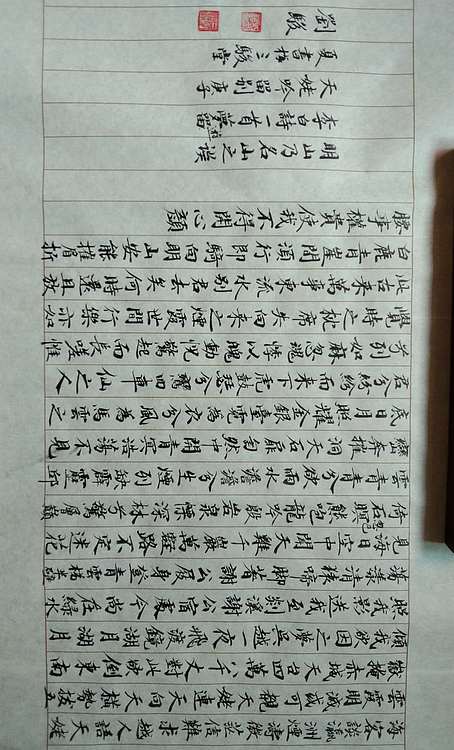 海客談瀛洲煙濤微茫信難求越人語天姥
雲霞明滅或可覩天姥連天向天橫勢拔五
嶽掩赤城天台四萬八千丈對此欲倒東南
傾我欲因之夢吳越一夜飛渡鏡湖月湖月
照我影送我至剡溪謝公宿處今尚在綠水
蕩漾清猿啼脚著謝公屐身登青雲梯半壁
見海日空中聞天雞千巖萬壑路不定迷花
倚石忽暝熊咆龍吟殷岩泉慄深林兮驚層巔
雲青青兮欲雨水澹澹兮生煙列缺霹靂丘
巒崩摧洞天石扉訇然中開青冥浩蕩不見
底日月照耀金銀臺霓為衣兮風為馬雲之
君兮紛紛而來下虎鼓瑟兮鸞回車仙之人
兮列如麻忽魂悸以魄動怳驚起而長嗟惟
覺時之枕席失向來之煙霞世間行樂亦如
此古來萬事東流水別君去矣何時還且放
白鹿青崖間須行即騎向明山安能摧眉折
腰事權貴使我不得開心顏
明山乃名山之誤
李白詩一首夢遊
天姥吟留別庚子
夏書於三駿堂
劉駿